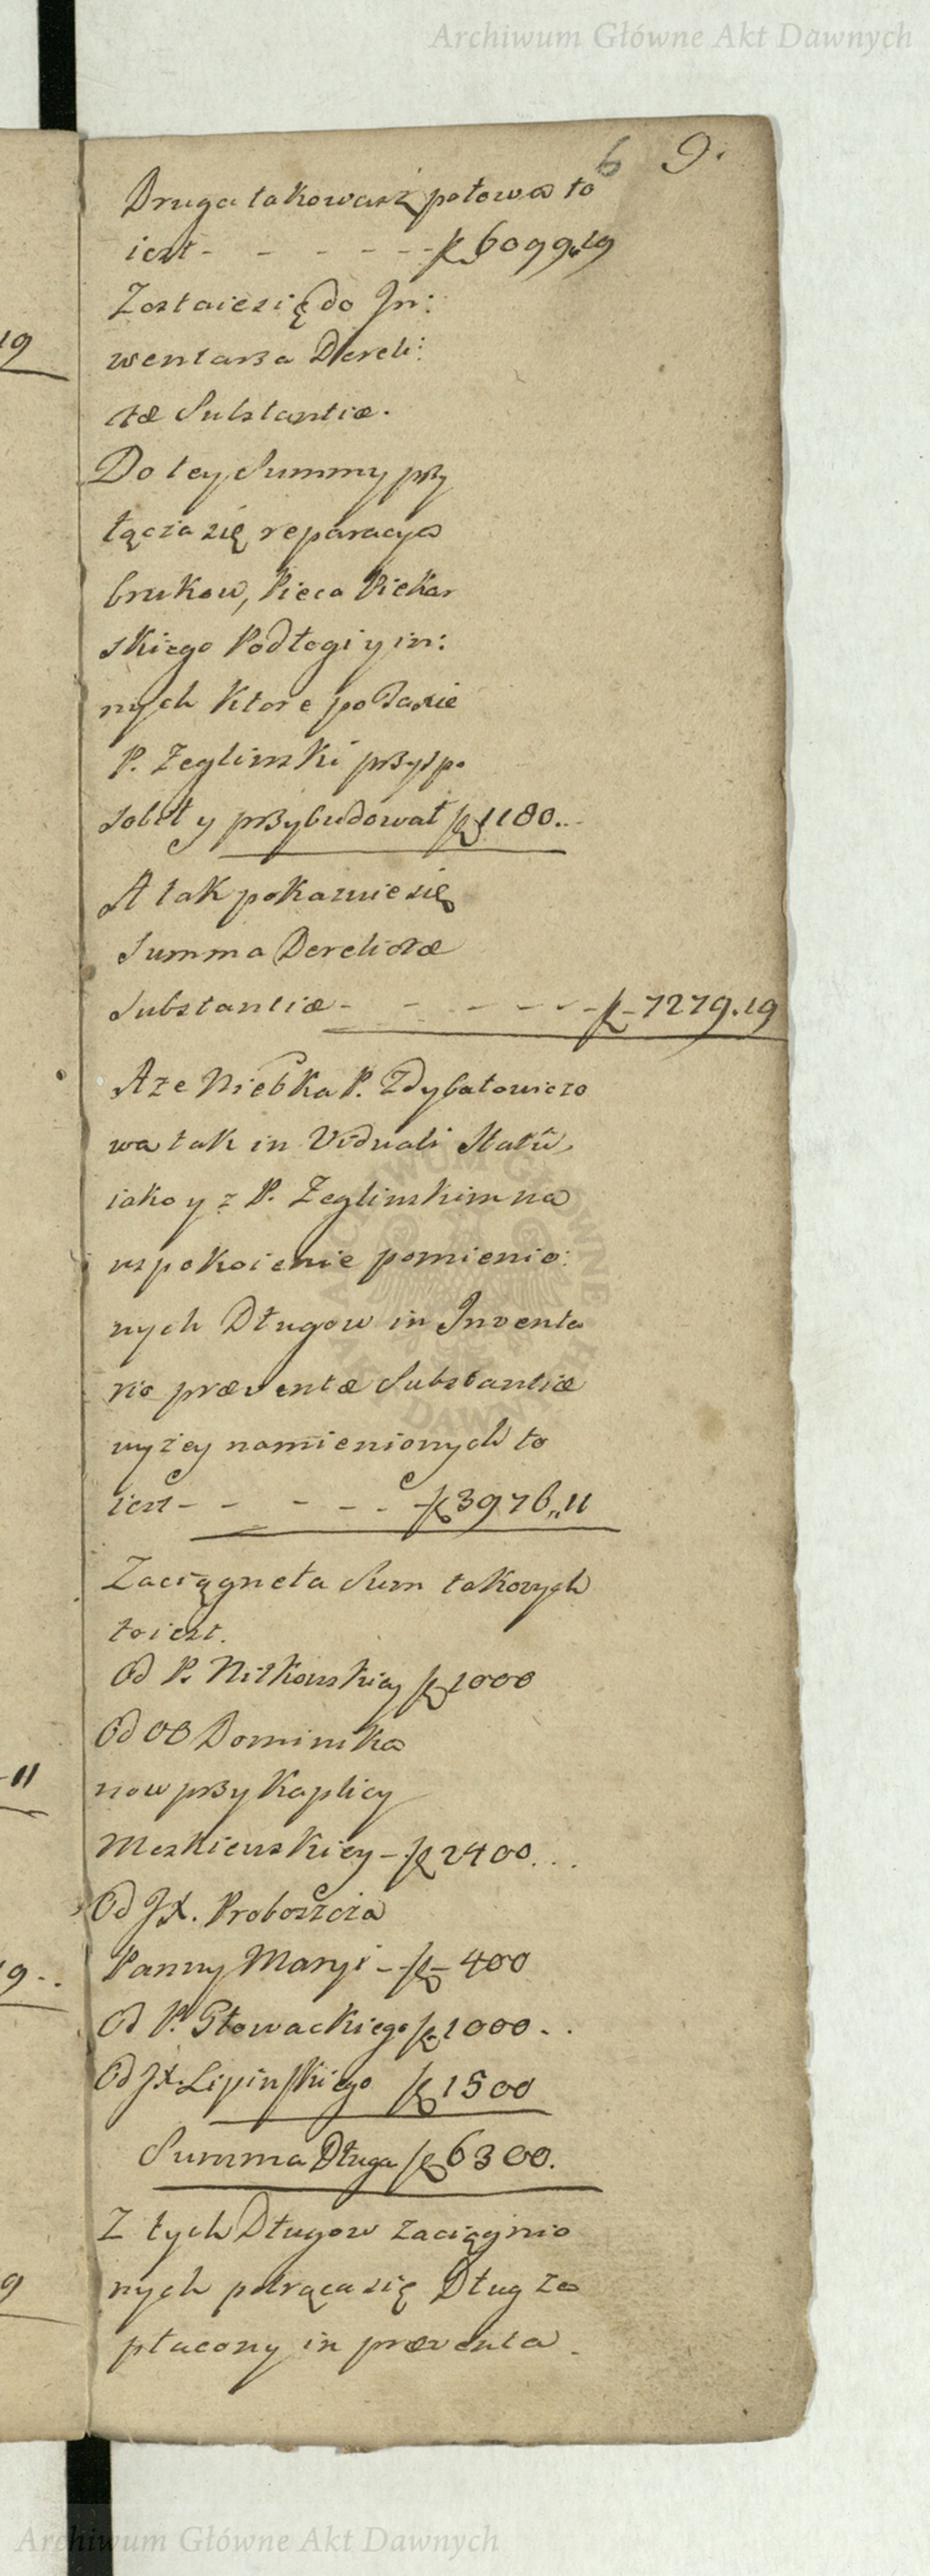 Archiwum Główne Akt Dawnych
6 9.
Druga takowasz połowa to
iest - - - - - - f 6099.19
Zostaie się do In:
wentarza Dereli:
ctæ Substantiæ.
Do tey Summy przy
łącza się reparacya
brukow, Pieca Piekar
skiego Podłogi y in:
nych ktore podanie
P. Zeglinski przyspo
sobił y przybudował f 1180...
A tak pokazuie się
Summa Derelictæ
Substantiæ - - - - - - f - 7279.19
A że Niebka P. Zdybałowiczo
wa tak in Viduali Statû,
iako y z P. Zeglinskim na
uspokoienie pomienio:
nych Długow in Inventa
rio præventæ Substantiæ
wyżey namienionych to
iest - - - - - - f 3976,,11
Zaciągneła Sum takowych
to iest.
Od P. Nitkowskiey f 1000
Od OO Dominika
now przy Kaplicy
Meskiewskiey - f 2400...
Od JX. Proboszcza
Panny Maryi - f - 400
Od P. Słowackiego f 1000 . .
Od JX. Lipinskiego f 1500
Summa Długa f 6300.
Z tych Długow zaciągnio
nych potrąca się Dług za
płacony in præventa
19
- 11
19 - .
9
Archiwum Główne Akt Dawnych